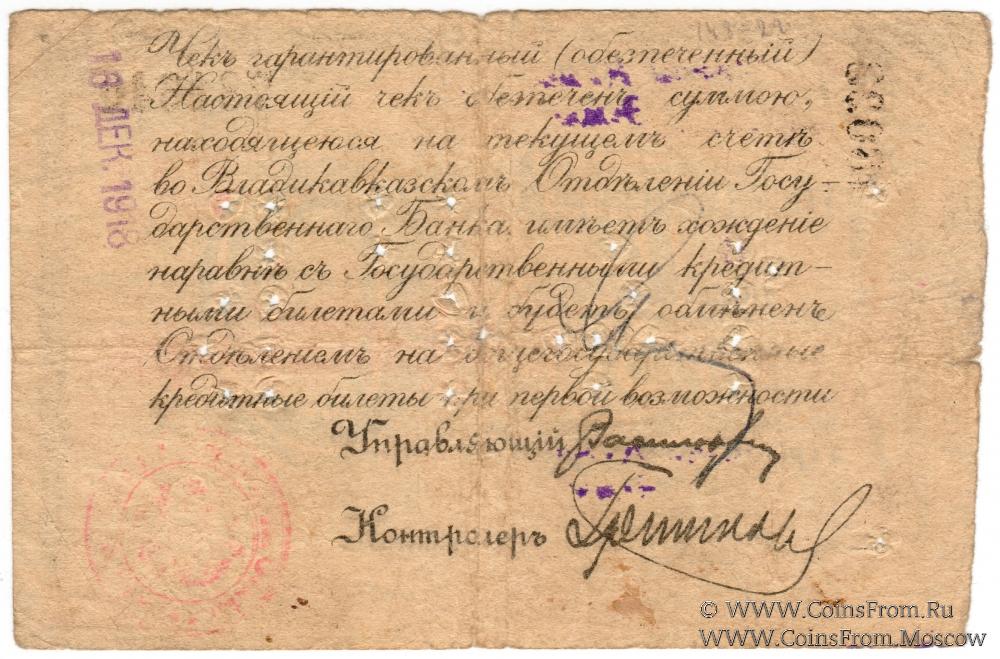 Чекъ гарантированный (обезпеченный)
Настоящій чекъ обезпеченъ суммою,
находящеюся на текущемъ счетѣ
во Владикавказскомъ Отдѣленіи Госу-
дарственнаго Банка имѣетъ хожденіе
наравнѣ съ Государственными кредит-
ными билетами и будетъ обмѣненъ
Отдѣленіемъ на общегосударственные
кредитные билеты при первой возможности
Управляющій
Контролеръ
ДЕК. 1918
© WWW.CoinsFrom.Ru
WWW.CoinsFrom.Moscow